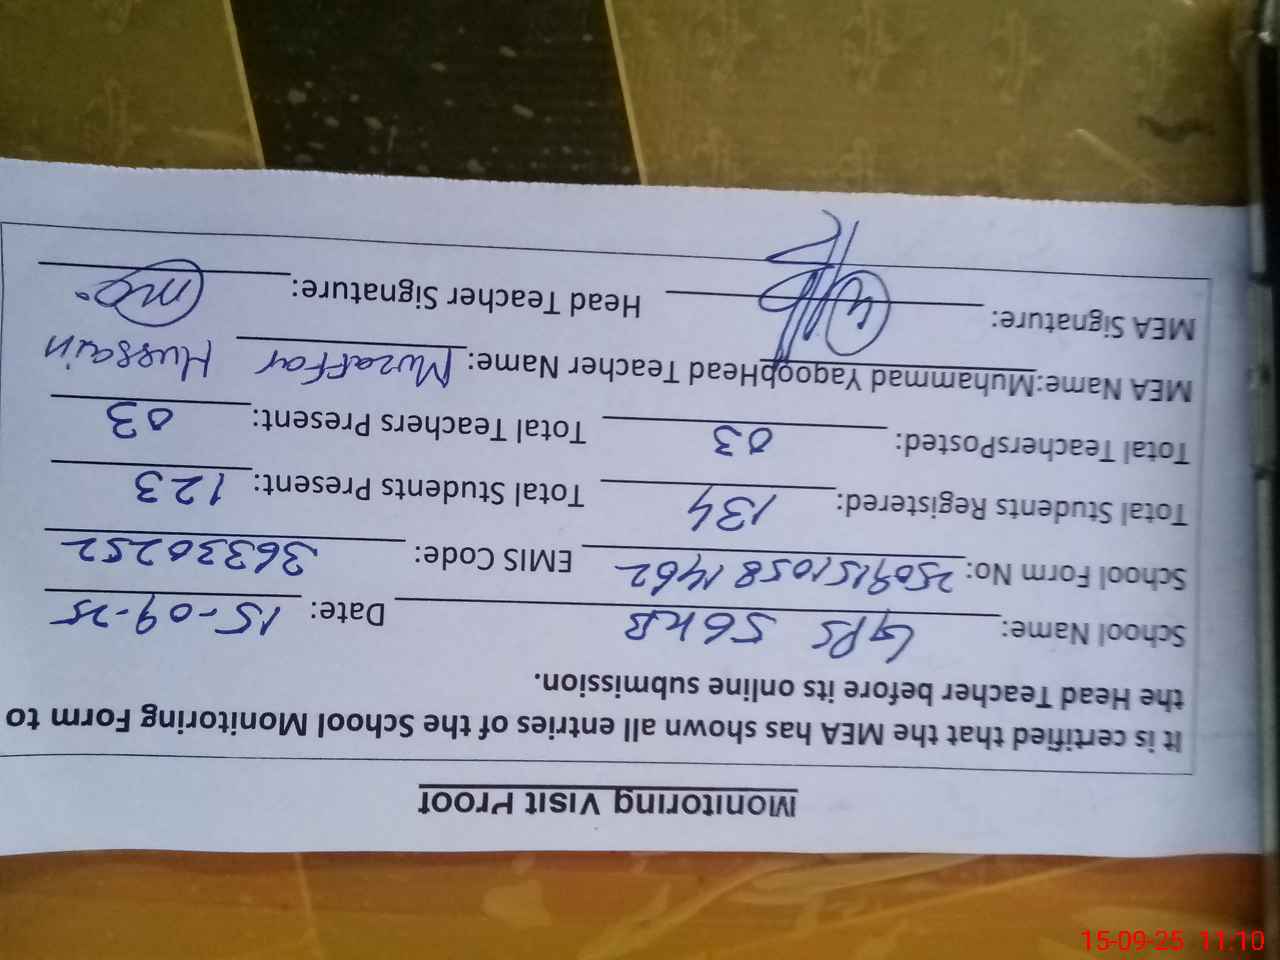 Monitoring Visit Proof
It is certified that the MEA has shown all entries of the School Monitoring Form to
the Head Teacher before its online submission.
School Name: GPS 56KB Date: 15-09-25
School Form No: 25091510581462 EMIS Code: 36330252
Total Students Registered: 134 Total Students Present: 123
Total TeachersPosted: 03 Total Teachers Present: 03
MEA Name:Muhammad YaqoobHead Teacher Name: Muzaffar Hussain
MEA Signature: Head Teacher Signature:
15-09-25 11:10